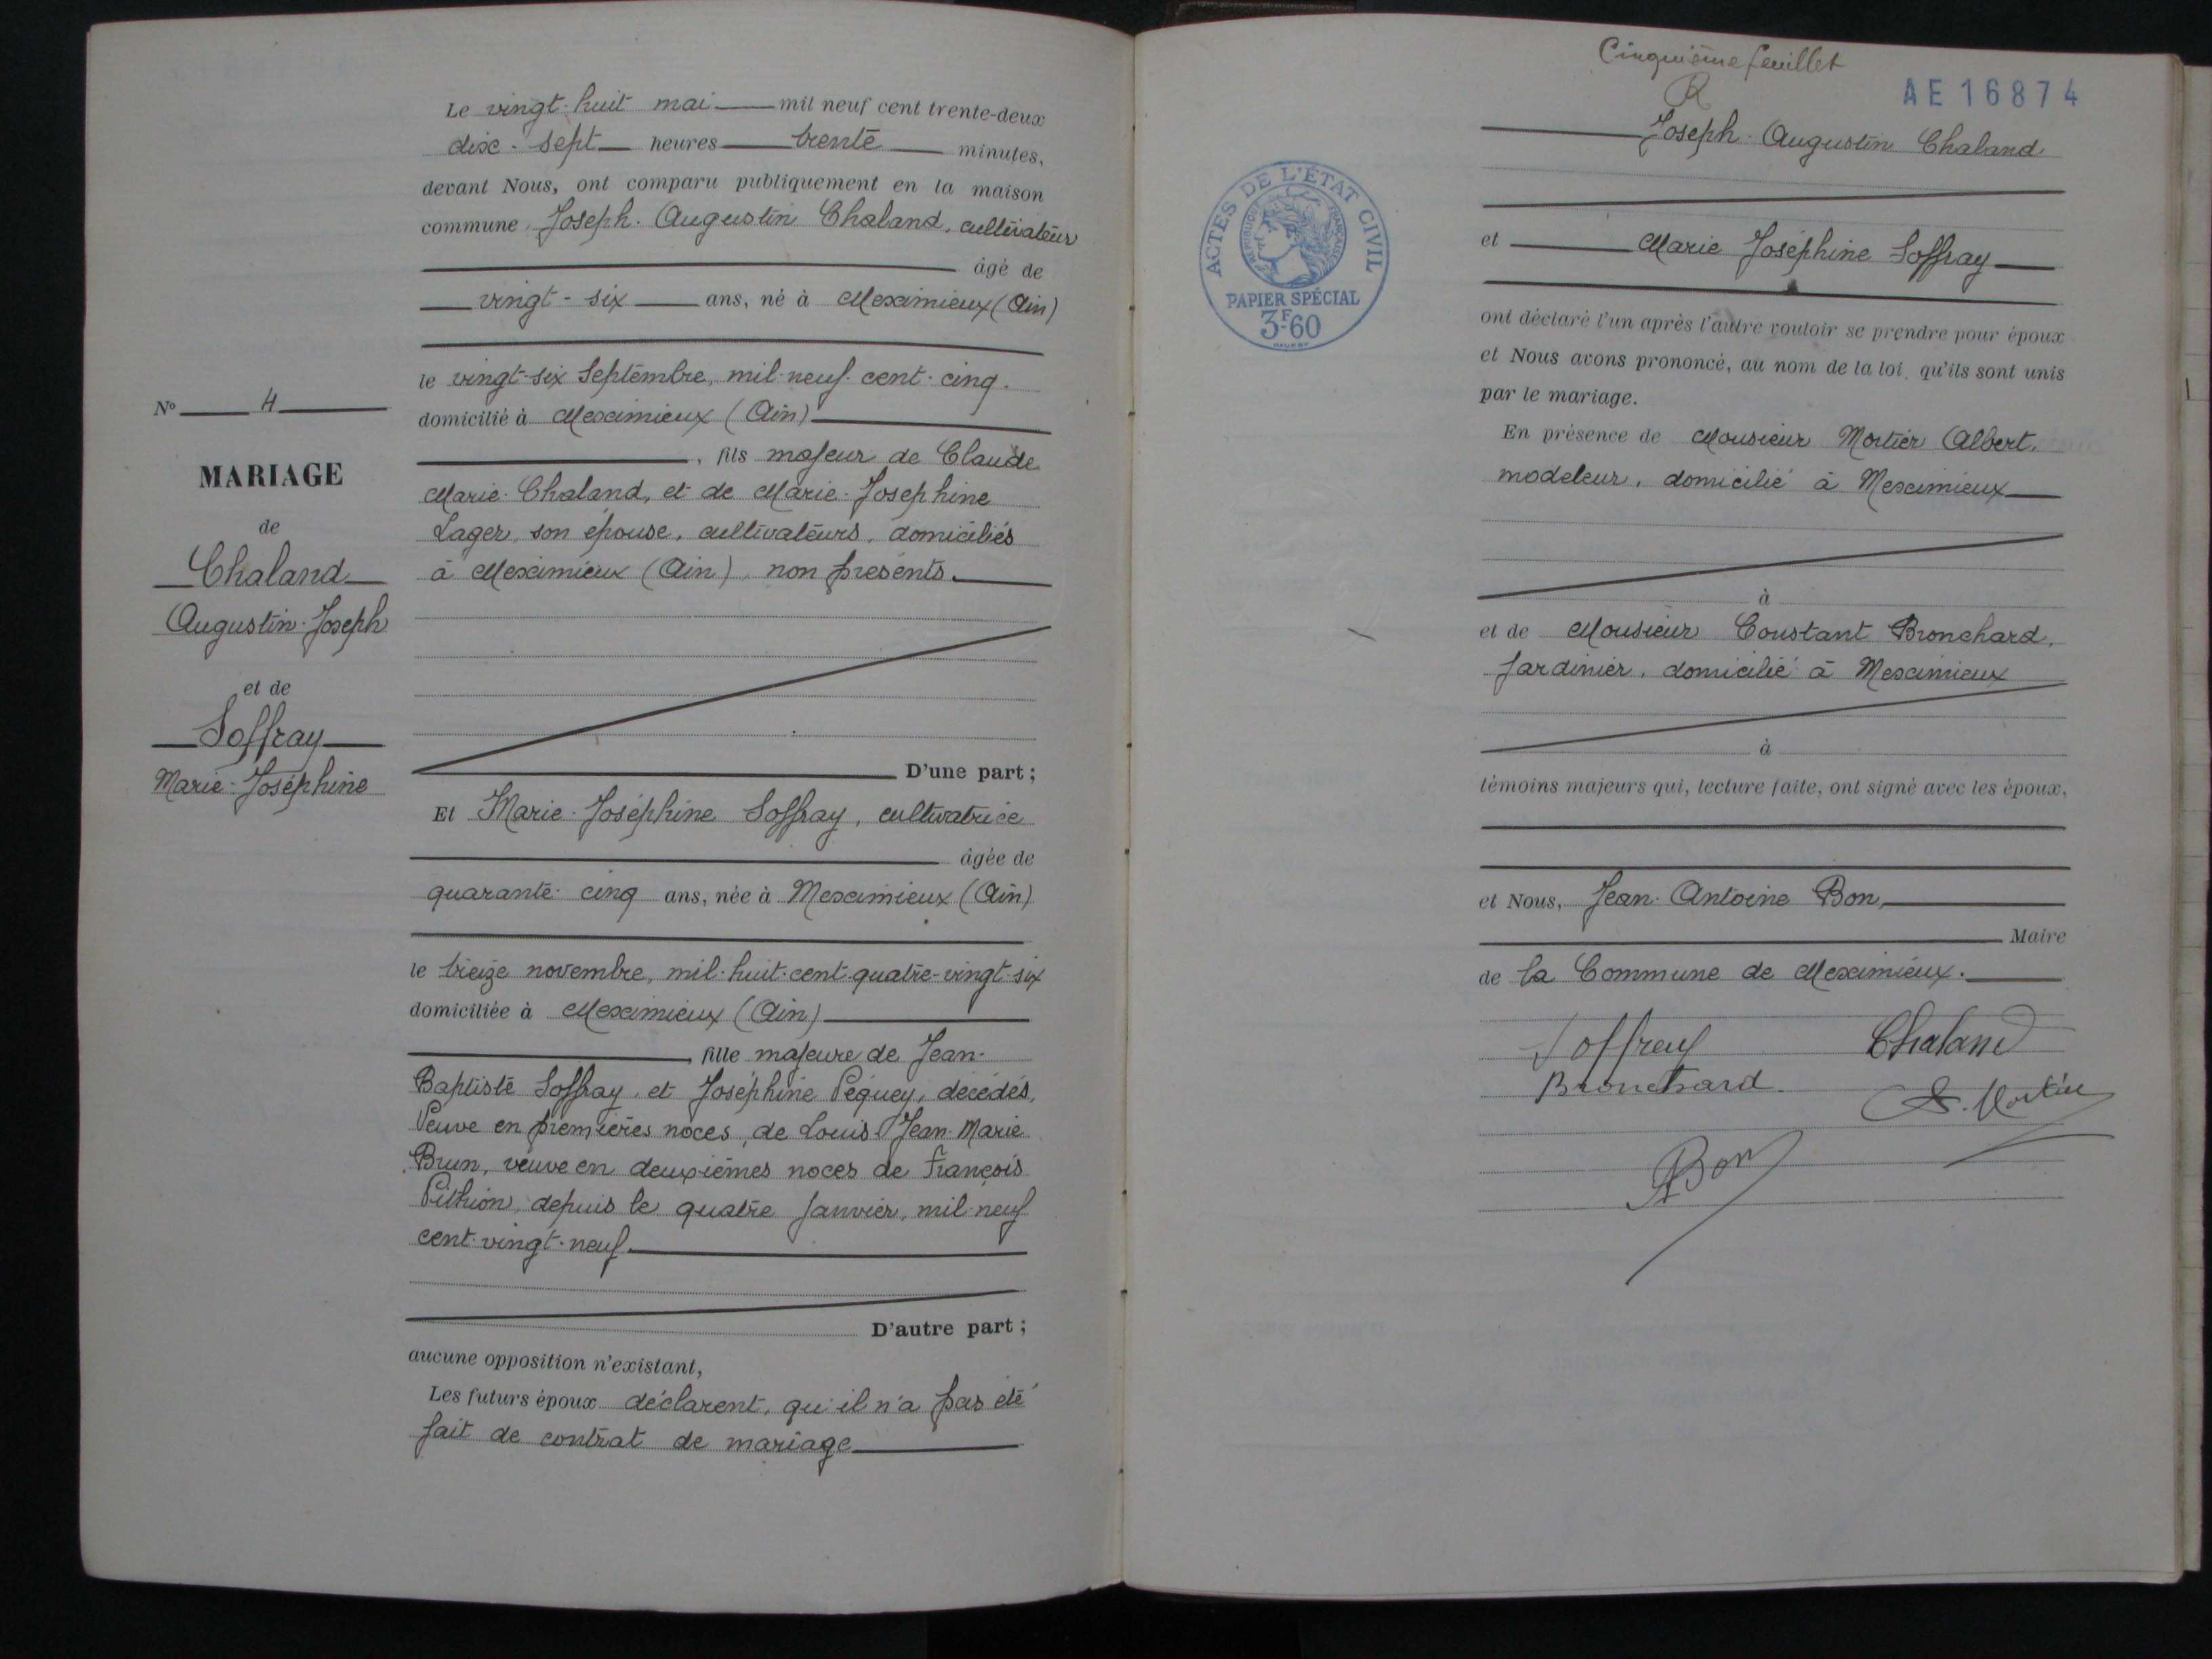 Le vingt-huit mai mil neuf cent trente-deux
dix-sept heures trente minutes,
devant Nous, ont comparu publiquement en la maison
commune, Joseph-Augustin Chaland, cultivateur
âgé de
vingt-six ans, né à Meximieux (Ain)
le vingt-six Septembre, mil-neuf-cent-cinq.
domicilié à Meximieux (Ain)
, fils majeur de Claude
Marie-Chaland, et de Marie-Josephine
Lager, son épouse, cultivateurs, domiciliés
à Meximieux (Ain), non présents.
D'une part ;
Nº 4
MARIAGE
de
Chaland
Augustin-Joseph
et de
Soffray
Marie-Joséphine
Et Marie-Joséphine Soffray, cultivatrice
âgée de
quarante-cinq ans, née à Meximieux (Ain)
le treize novembre, mil-huit-cent-quatre-vingt-six
domiciliée à Meximieux (Ain)
, fille majeure de Jean-
Baptiste Soffray, et Joséphine Péquey, décédés,
Veuve en premières noces, de Louis Jean-Marie
Brun, veuve en deuxièmes noces de François
Pithion, depuis le quatre Janvier, mil-neuf
cent-vingt-neuf.
D'autre part ;
aucune opposition n'existant,
Les futurs époux déclarent, qu'il n'a pas été
fait de contrat de mariage
Cinquième feuillet
R
AE 16874
ACTES DE L'ÉTAT CIVIL
RÉPUBLIQUE FRANÇAISE
PAPIER SPÉCIAL
3F60
Joseph-Augustin Chaland
et Marie Joséphine Soffray
ont déclaré l'un après l'autre vouloir se prendre pour époux
et Nous avons prononcé, au nom de la loi, qu'ils sont unis
par le mariage.
En présence de Monsieur Mortier Albert,
modeleur, domicilié à Meximieux
à
et de Monsieur Constant Bronchard,
Jardinier, domicilié à Meximieux
à
témoins majeurs qui, lecture faite, ont signé avec les époux,
et Nous, Jean-Antoine Bon,
Maire
de la Commune de Meximieux.
Soffrey Chaland
Bronchard A. Mortier
ABon